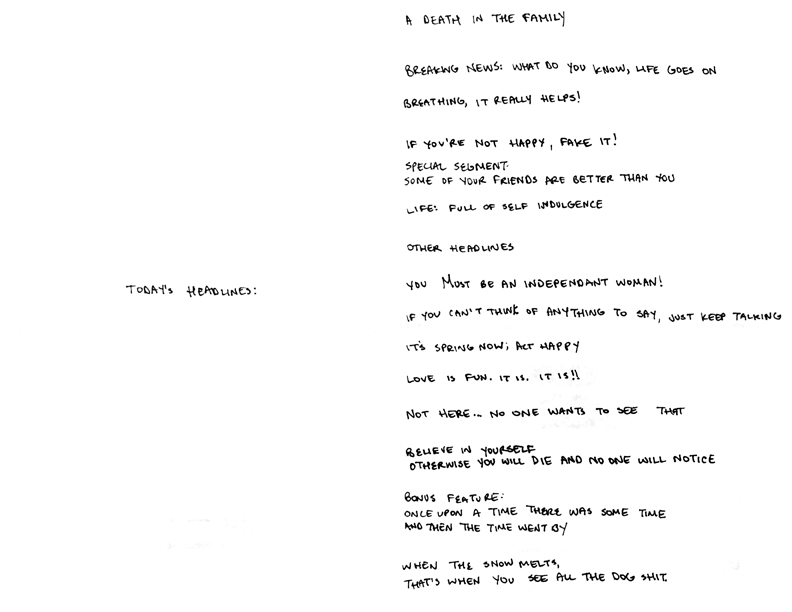 TODAY'S HEADLINES:
A DEATH IN THE FAMILY
BREAKING NEWS: WHAT DO YOU KNOW, LIFE GOES ON
BREATHING, IT REALLY HELPS!
IF YOU'RE NOT HAPPY, FAKE IT!
SPECIAL SEGMENT:
SOME OF YOUR FRIENDS ARE BETTER THAN YOU
LIFE: FULL OF SELF INDULGENCE
OTHER HEADLINES
YOU MUST BE AN INDEPENDANT WOMAN!
IF YOU CAN'T THINK OF ANYTHING TO SAY, JUST KEEP TALKING
IT'S SPRING NOW; ACT HAPPY
LOVE IS FUN. IT IS. IT IS!!
NOT HERE... NO ONE WANTS TO SEE THAT
BELIEVE IN YOURSELF
OTHERWISE YOU WILL DIE AND NO ONE WILL NOTICE
BONUS FEATURE:
ONCE UPON A TIME THERE WAS SOME TIME
AND THEN THE TIME WENT BY
WHEN THE SNOW MELTS,
THAT'S WHEN YOU SEE ALL THE DOG SHIT.